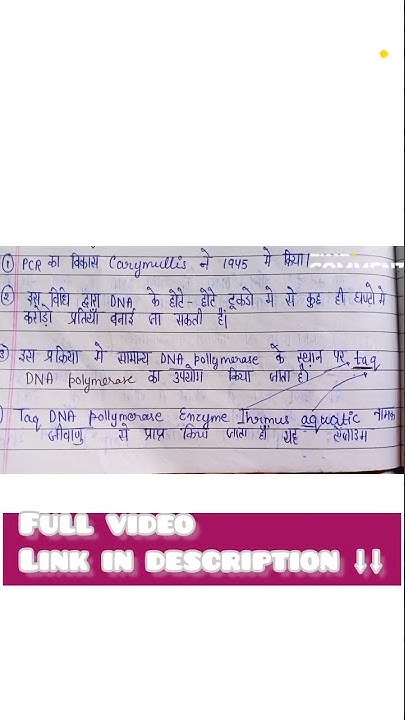 ① PCR का विकास Carymullis ने 1945 मे किया।
COMMENT
② इस विधि द्वारा DNA के छोटे-छोटे टूकडो मे से कुछ ही घण्टो मे
करोड़ो प्रतियाँ बनाई जा सकती है।
3) इस प्रक्रिया मे सामान्य DNA pollymerase के स्थान पर taq
DNA polymerase का उपयोग किया जाता है।
) Taq DNA pollymerase Enzyme Thrimus aquatic नामक
जीवाणु से प्राप्त किया जाता है। यह एंजाइम
FULL VIDEO
LINK IN DESCRIPTION ↓↓